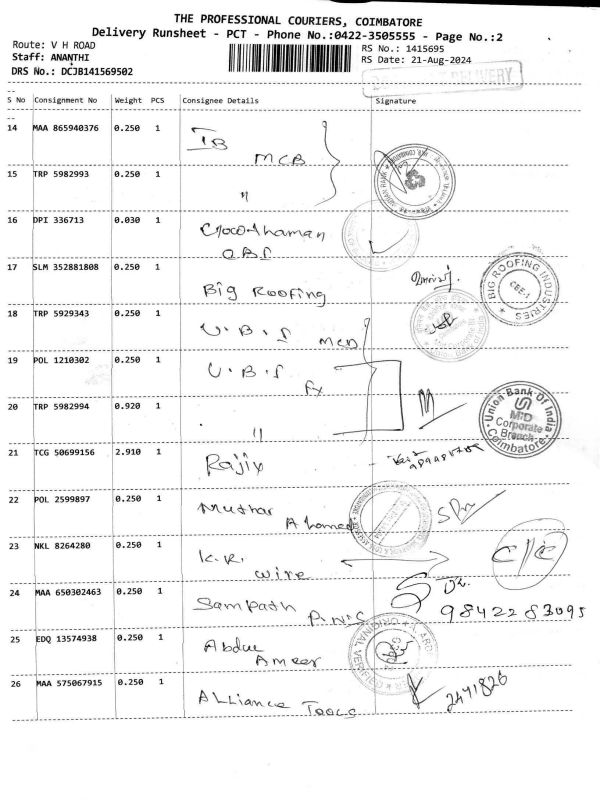 THE PROFESSIONAL COURIERS, COIMBATORE
Delivery Runsheet - PCT - Phone No.:0422-3505555 - Page No.:2
Route: V H ROAD
RS No.: 1415695
Staff: ANANTHI
RS Date: 21-Aug-2024
DRS No.: DCJB141569502
DELIVERY
S No Consignment No Weight PCS Consignee Details Signature
14 MAA 865940376 0.250 1 IB
MCB
15 TRP 5982993 0.250 1 "
16 DPI 336713 0.030 1
17 SLM 352881808 0.250 1 Big Roofing
BIG ROOFING INDUSTRIES
CBE-1
18 TRP 5929343 0.250 1 U.B.I
19 POL 1210302 0.250 1 U.B.I
Fx
20 TRP 5982994 0.920 1 "
Union Bank Of India
Mid Corporate Branch
Coimbatore
21 TCG 50699156 2.910 1 Rajix
22 POL 2599897 0.250 1 Muthar
Ahamed
23 NKL 8264280 0.250 1 K.R.
wire
C/C
24 MAA 650302463 0.250 1 Sampath
9842283095
25 EDQ 13574938 0.250 1 Abdul
Ameer
26 MAA 575067915 0.250 1 Alliance Tools
2441826